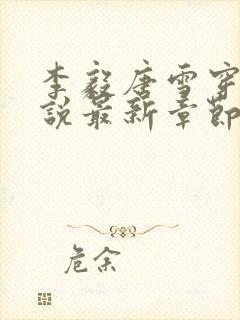 李毅唐雪穿
说最新章節
危余